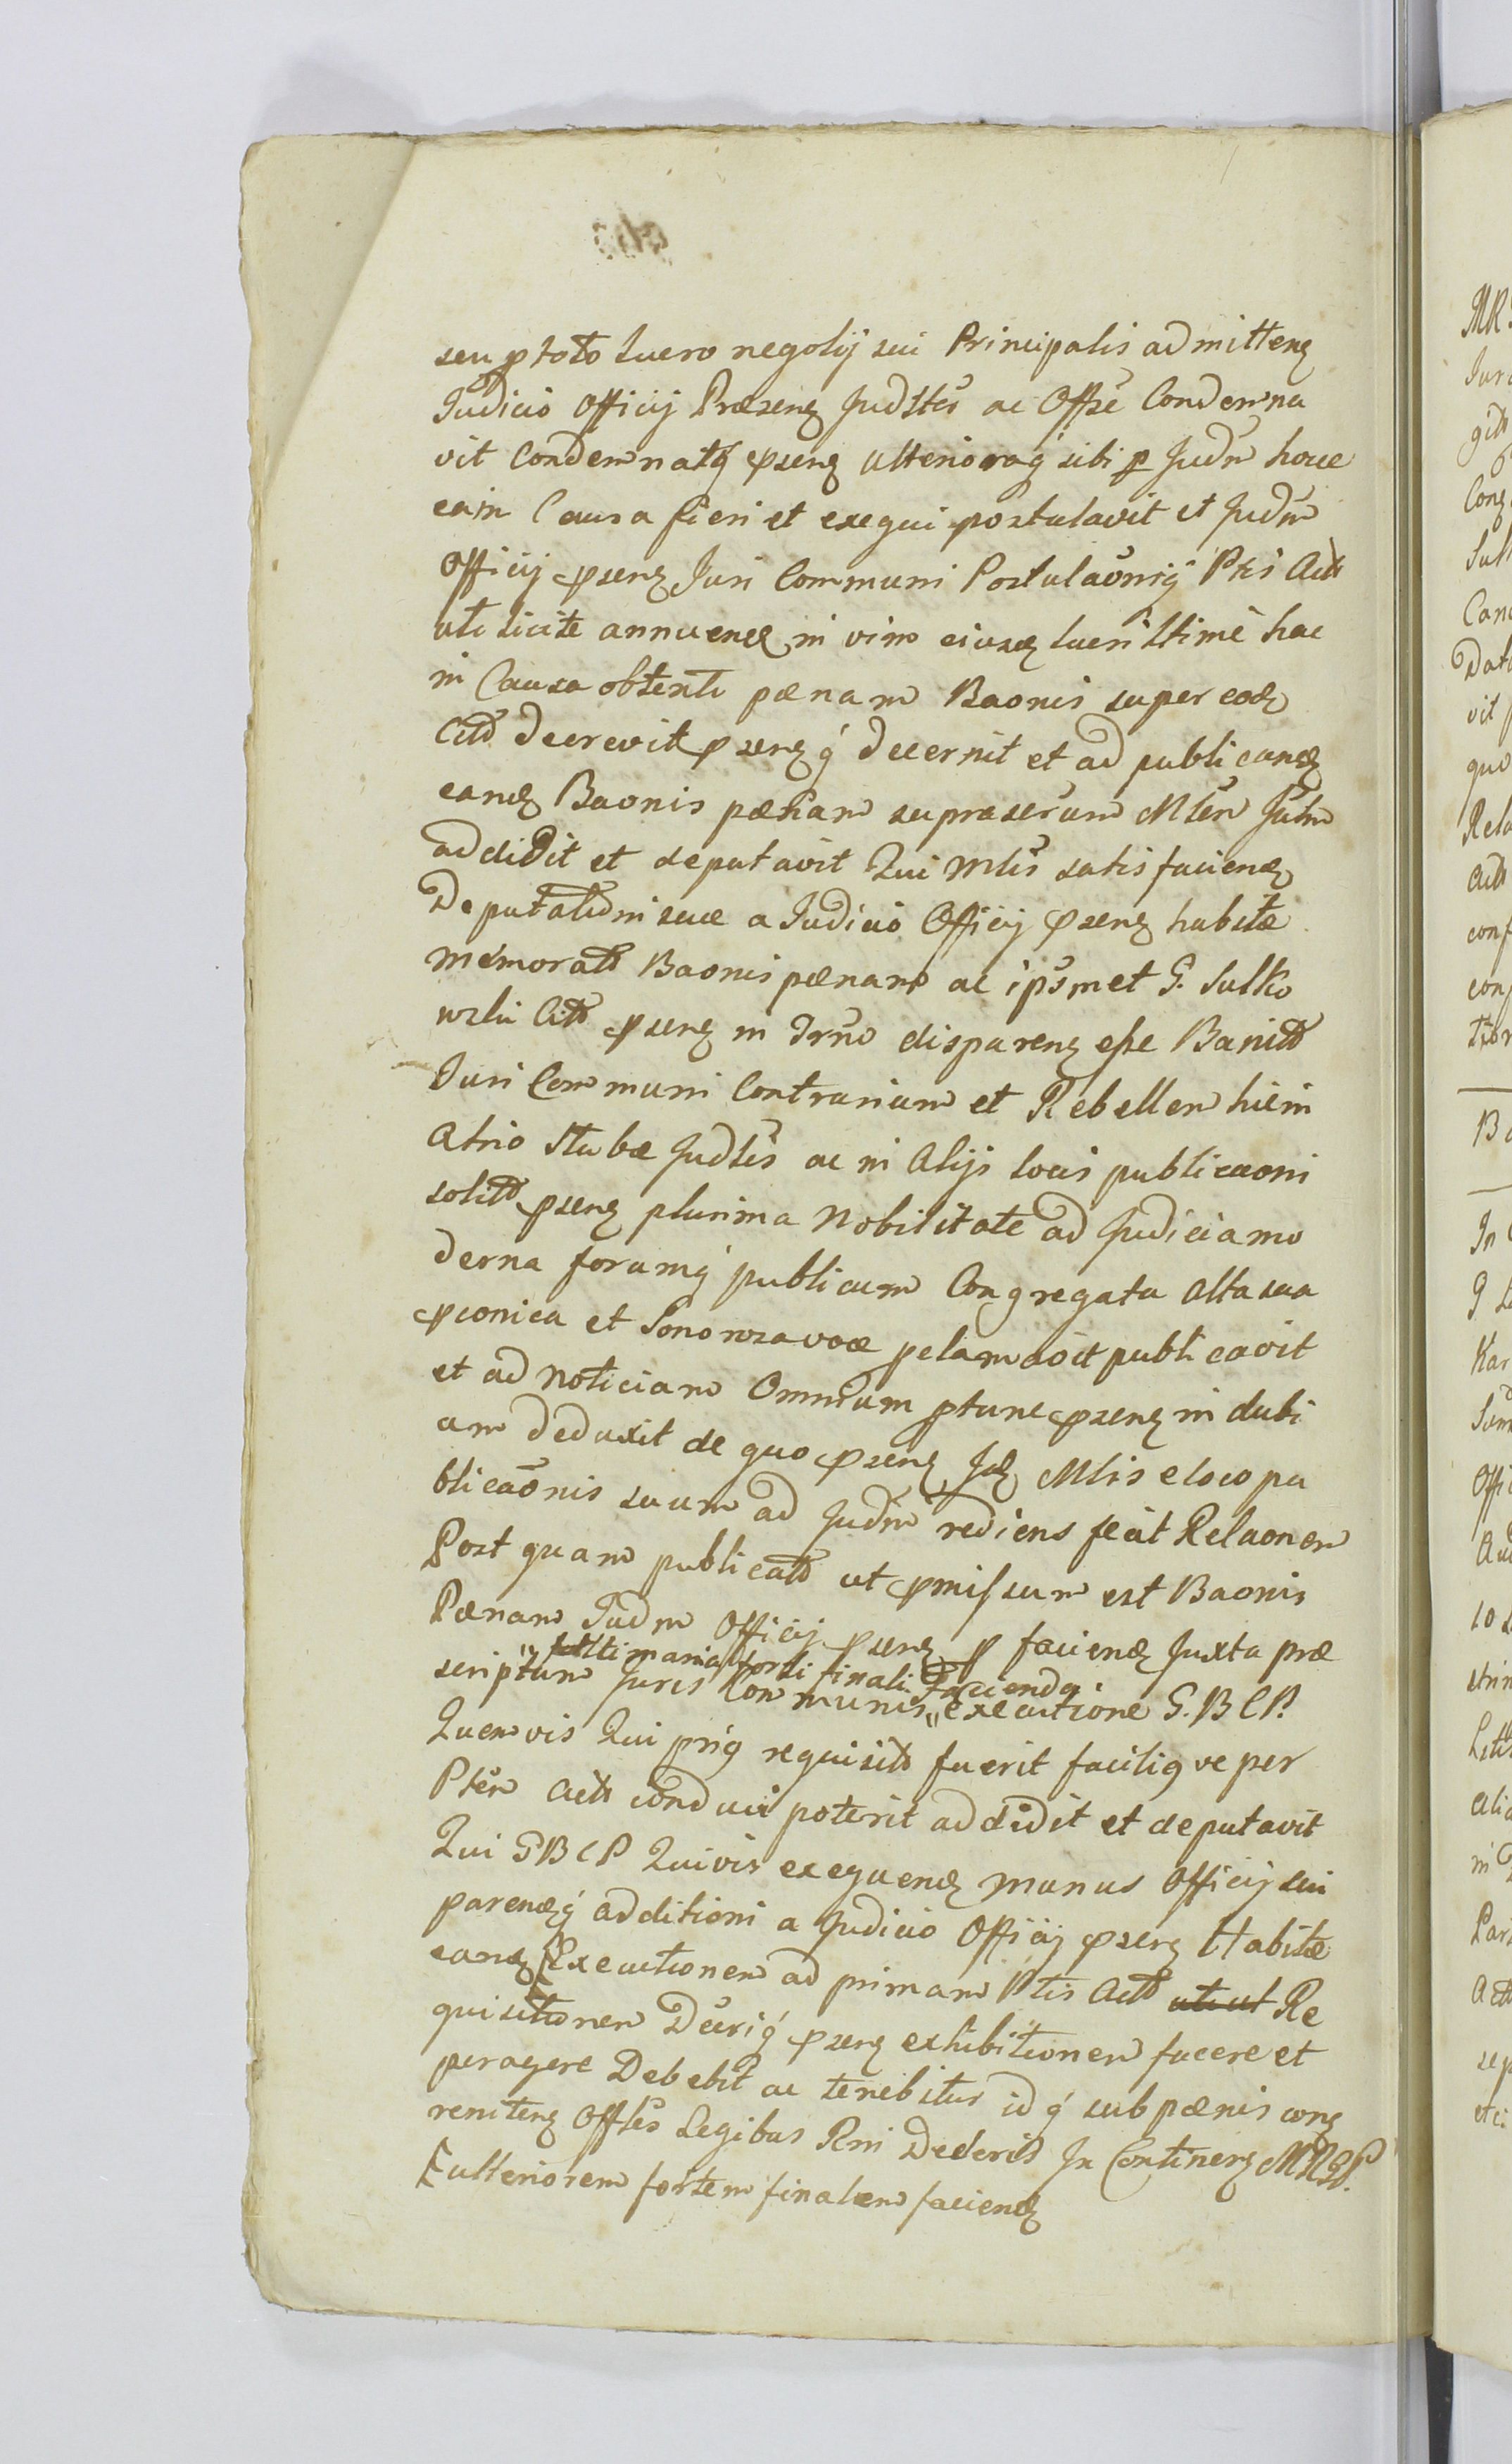 seu p toto lucro negotij sui Principalis admitteng
Judicio Officij Præseng Judtti ac Offse Condemna
vit Condemnatq pseng ulteriorag sibi p Judm hocce
ea in Causa fieri et exequi postulavit et Judm
Officij pseng Juri Communi Postulaonig Ptis Act
uti licite annueng in vim eiusd lucri ltime hac
in Causa obtenti pænam Baonis super eod
Citto decrevit pseng q decernit et ad publicand
eand Baonis pænam suprascrum Mlen Judm
addidit et deputavit Qui Mlis satisfaciend
Deputationi suæ a Judicio Officij pseng habitæ
memoratt Baonis pænam ac ipsmet G. Sulko
wski Citt pseng in Trno dispareng esse Banitt
Juri Communi Contrarium et Rebellem hic in
Atrio Stubæ Judlis ac in Alijs locis publicaoni
solitt pseng plurima Nobilitate ad Judicia mo
derna forumq publicum Congregata Alta sua
pconica et Sonorosa voce pclamavit publicavit
et ad noticiam Omnium ptunc pseng in dubi
am deduxit de quo pseng Jd Mlis e loco pu
blicaonis suum ad Judm rediens fecit Relaonem
Post quam publicatt ut pmissum est Baonis
Pænam Judm Officij pseng p faciend Juxta præ
ultimaria forti finali facienda
scriptum Juris Communis " executione G. B C P.
Quemvis Qui prig requisitt fuerit faciligve per
Ptem Actt conduci poterit addidit et deputavit
Qui GBCP Quivis exequend munus Officij sui
parendq additioni a Judicio Officij pseng Habitæ
eand Executionem ad primam Ptis Actt uti ut Re
quisitionem Decriq pseng exhibitionem facere et
peragere Debebit ac tenebitur id q sub pænis cong
reniteng Offles Legibus Rni Dederis In Contineng MRSP.
ulteriorem fortem finalem faciend